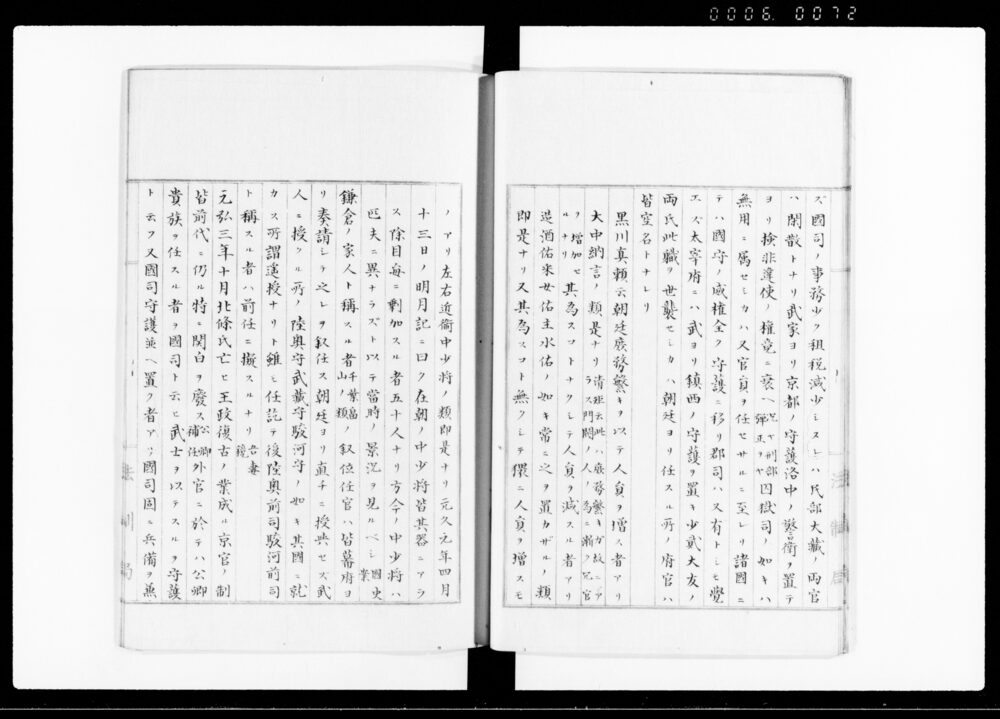 0006. 0072
ズ國司ノ事務少ク租税減少シスレハ民部大藏ノ両官
ハ閑散トナリ武家ヨリ京都ノ守護洛中ノ警衛ヲ置テ
ヨリ検非違使ノ権竟ニ衰ヘ況ヤ刑部弾正ヲヤ囚獄司ノ如キハ
無用ニ属セシカハ又官員ヲ任セサルニ至レリ諸國ニ
テハ國守ノ威権全ク守護ニ移リ郡司ハ又有トシモ覺
エズ太宰府ニハ武ヨリ鎮西ノ守護ヲ置キ少貳大友ノ
両氏此職ヲ世襲セシカハ朝廷ヨリ任スル所ノ府官ハ
皆空名トナレリ
黒川真頼云朝廷廢務繁キヲ以テ人員ヲ増ス者アリ
大中納言ノ類是ナリ清班云此ハ庶務繁キガ故ニアラス門閥ノ人ノ為ニ漸ク冗官
ヲ増加セルナリ其為スコトナクシテ人員ヲ減スル者アリ
造酒佑采女佑主水佑ノ如キ常ニ之ヲ置カザルノ類
即是ナリ又其為スコト無クシテ猥ニ人員ヲ増スモ
ノアリ左右近衛中少将ノ類即是ナリ元久元年四月
十三日ノ明月記ニ曰ク在朝ノ中少将皆其器ニアラ
ス除目毎ニ剰加スル者五十人ナリ方今ノ中少将ハ
匹夫ニ異ナラズト以テ當時ノ景況ヲ見ルベシ國史案
鎌倉ノ家人ト稱スル者千葉富山ノ類ノ叙位任官ハ皆幕府ヨ
リ奏請シテ之レヲ叙任ス朝廷ヨリ直チニ授與セズ武
人ニ授クル所ノ陸奥守武藏守駿河守ノ如キ其國ニ就
カス所謂遥授ナリト雖シ任訖テ後陸奥前司駿河前司
ト稱スル者ハ前任ニ擬スルナリ吾妻鏡
元弘三年十月北條氏亡ヒ王政復古ノ業成ル京官ノ制
皆前代ニ仍ル特ニ関白ヲ廢ス公卿補任外官ニ於テハ公卿
貴族ヲ任スル者ヲ國司ト云ヒ武士ヲ以テスルヲ守護
ト云フ又國司守護並ヘ置ク者アリ國司固ニ兵備ヲ兼
法制局